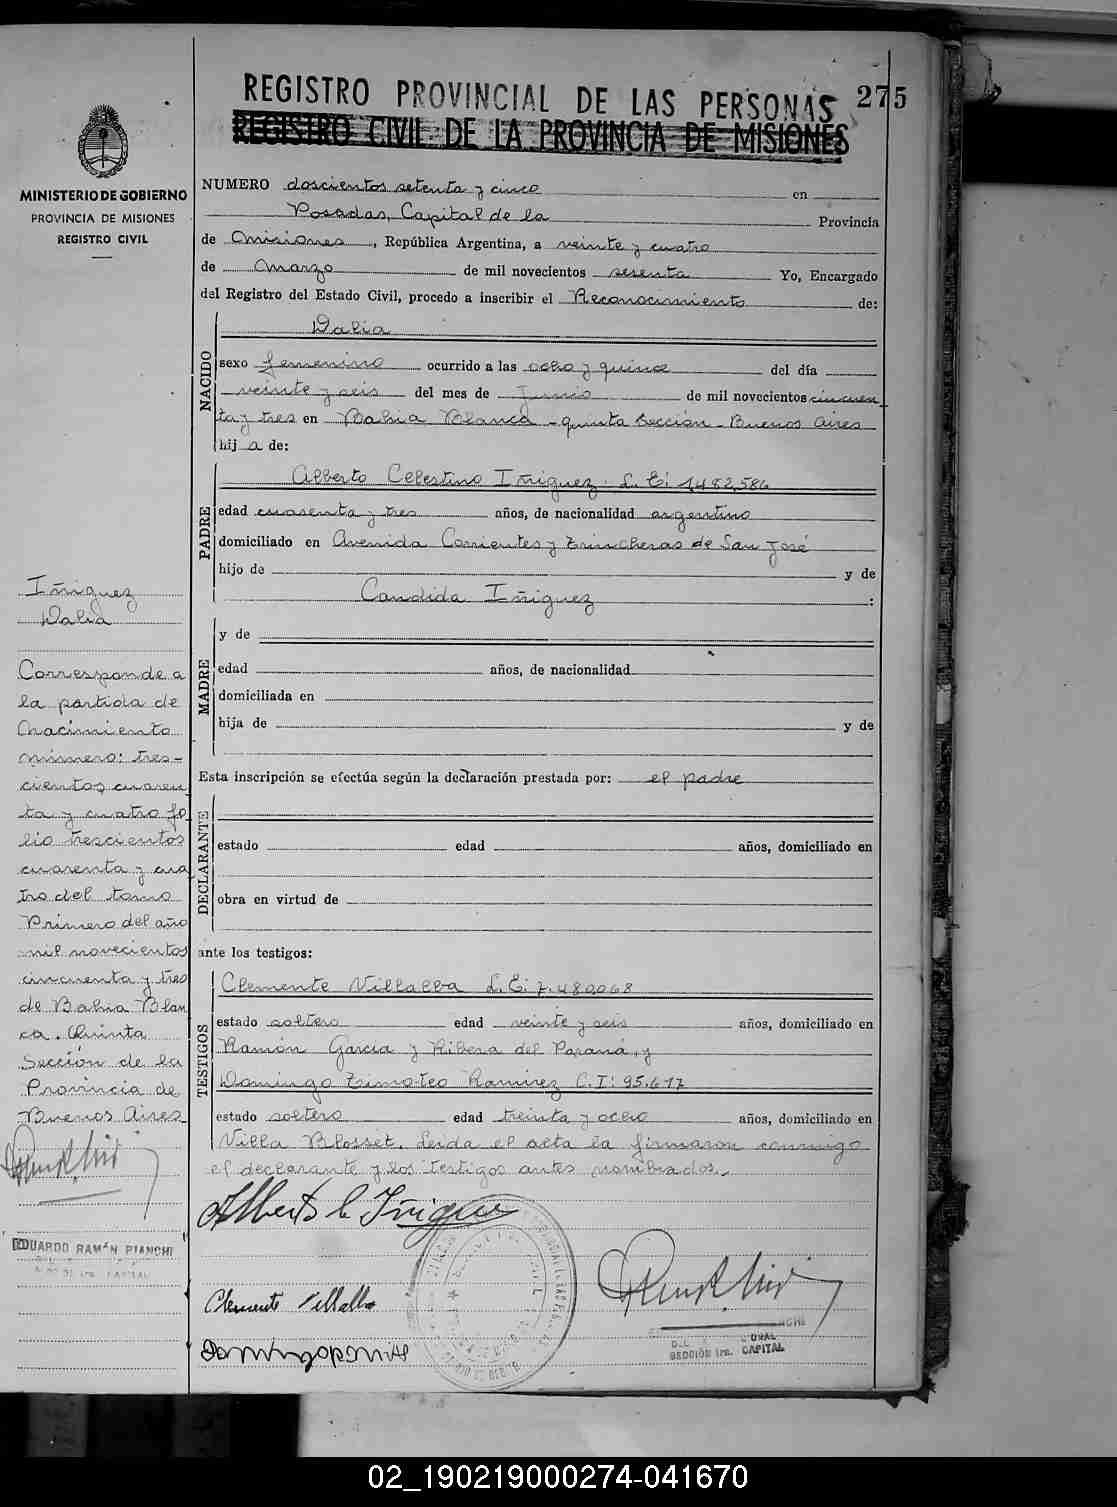 REGISTRO PROVINCIAL DE LAS PERSONAS 275
REGISTRO CIVIL DE LA PROVINCIA DE MISIONES
MINISTERIO DE GOBIERNO
PROVINCIA DE MISIONES
REGISTRO CIVIL
NUMERO doscientos setenta y cinco en
Posadas, Capital de la Provincia
de Misiones, República Argentina, a veinte y cuatro
de Marzo de mil novecientos sesenta Yo, Encargado
del Registro del Estado Civil, procedo a inscribir el Reconocimiento de:
NACIDO
Dalia
sexo femenino ocurrido a las ocho y quince del día
veinte y seis del mes de Junio de mil novecientos cincuen
ta y tres en Bahia Blanca - quinta Seccion - Buenos Aires
hij a de:
PADRE
Alberto Celestino Iñiguez. L. E: 1.482.586
edad cuarenta y tres años, de nacionalidad argentino
domiciliado en Avenida Corrientes y Trincheras de San José
hijo de y de
Candida Iñiguez :
MADRE
y de
edad años, de nacionalidad
domiciliada en
hija de y de
Esta inscripción se efectúa según la declaración prestada por: el padre
DECLARANTE
estado edad años, domiciliado en
obra en virtud de
ante los testigos:
TESTIGOS
Clemente Villalba L. E: 7.480.068
estado soltero edad veinte y seis años, domiciliado en
Ramón García y Ribera del Paraná, y
Domingo Timoteo Ramirez C. I: 95.617
estado soltero edad treinta y ocho años, domiciliado en
Villa Blosset. Leida el acta la firmaron conmigo
el declarante y los testigos antes nombrados.
Alberto C Iñiguez
Clemente Villalba
SECCIÓN 1ra. CAPITAL
Iñiguez
Dalia
Corresponde a
la partida de
Nacimiento
número: tres-
cientos cuaren
ta y cuatro fo
lio trescientos
cuarenta y cua
tro del tomo
Primero del año
mil novecientos
cincuenta y tres
de Bahia Blan
ca. Quinta
Sección de la
Provincia de
Buenos Aires
EDUARDO RAMÓN BIANCHI
02_190219000274-041670